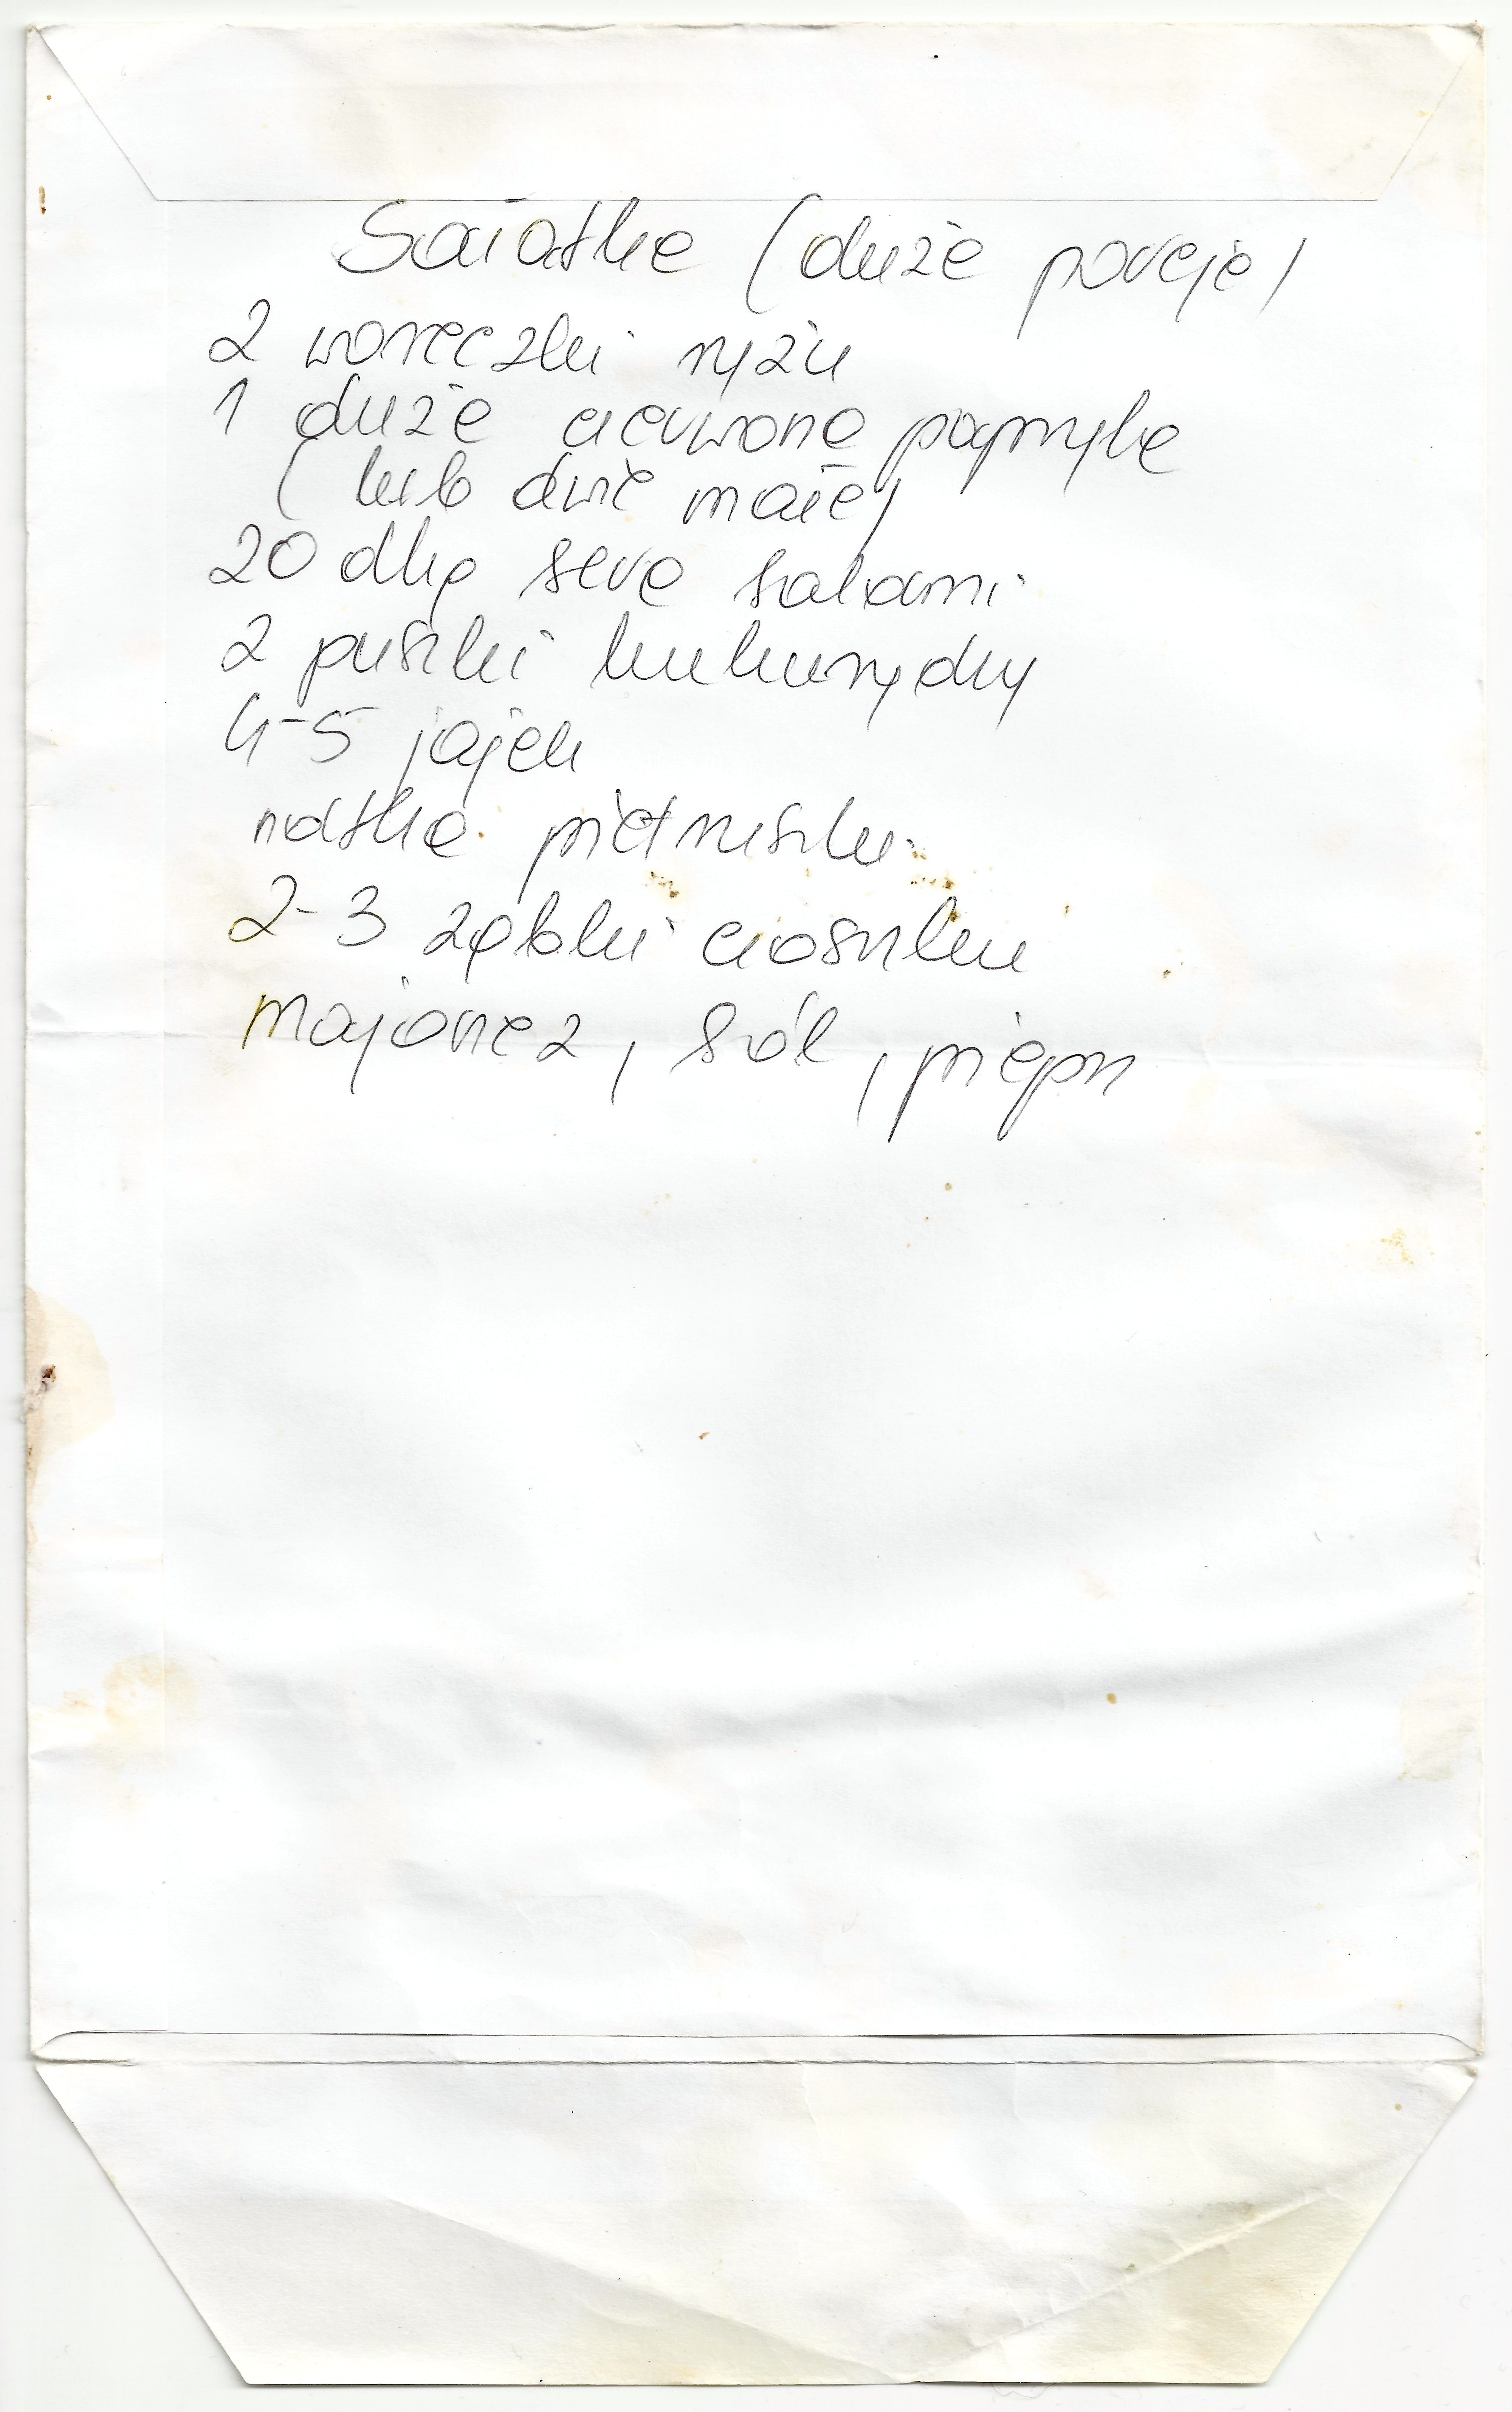 Sałatka (duża porcja)
2 woreczki ryżu
1 duża czerwona papryka
(lub dwie małe)
20 dkg sera salami
2 puszki kukurydzy
4-5 jajek
natka pietruszki
2-3 ząbki czosnku
majonez, sól, pieprz